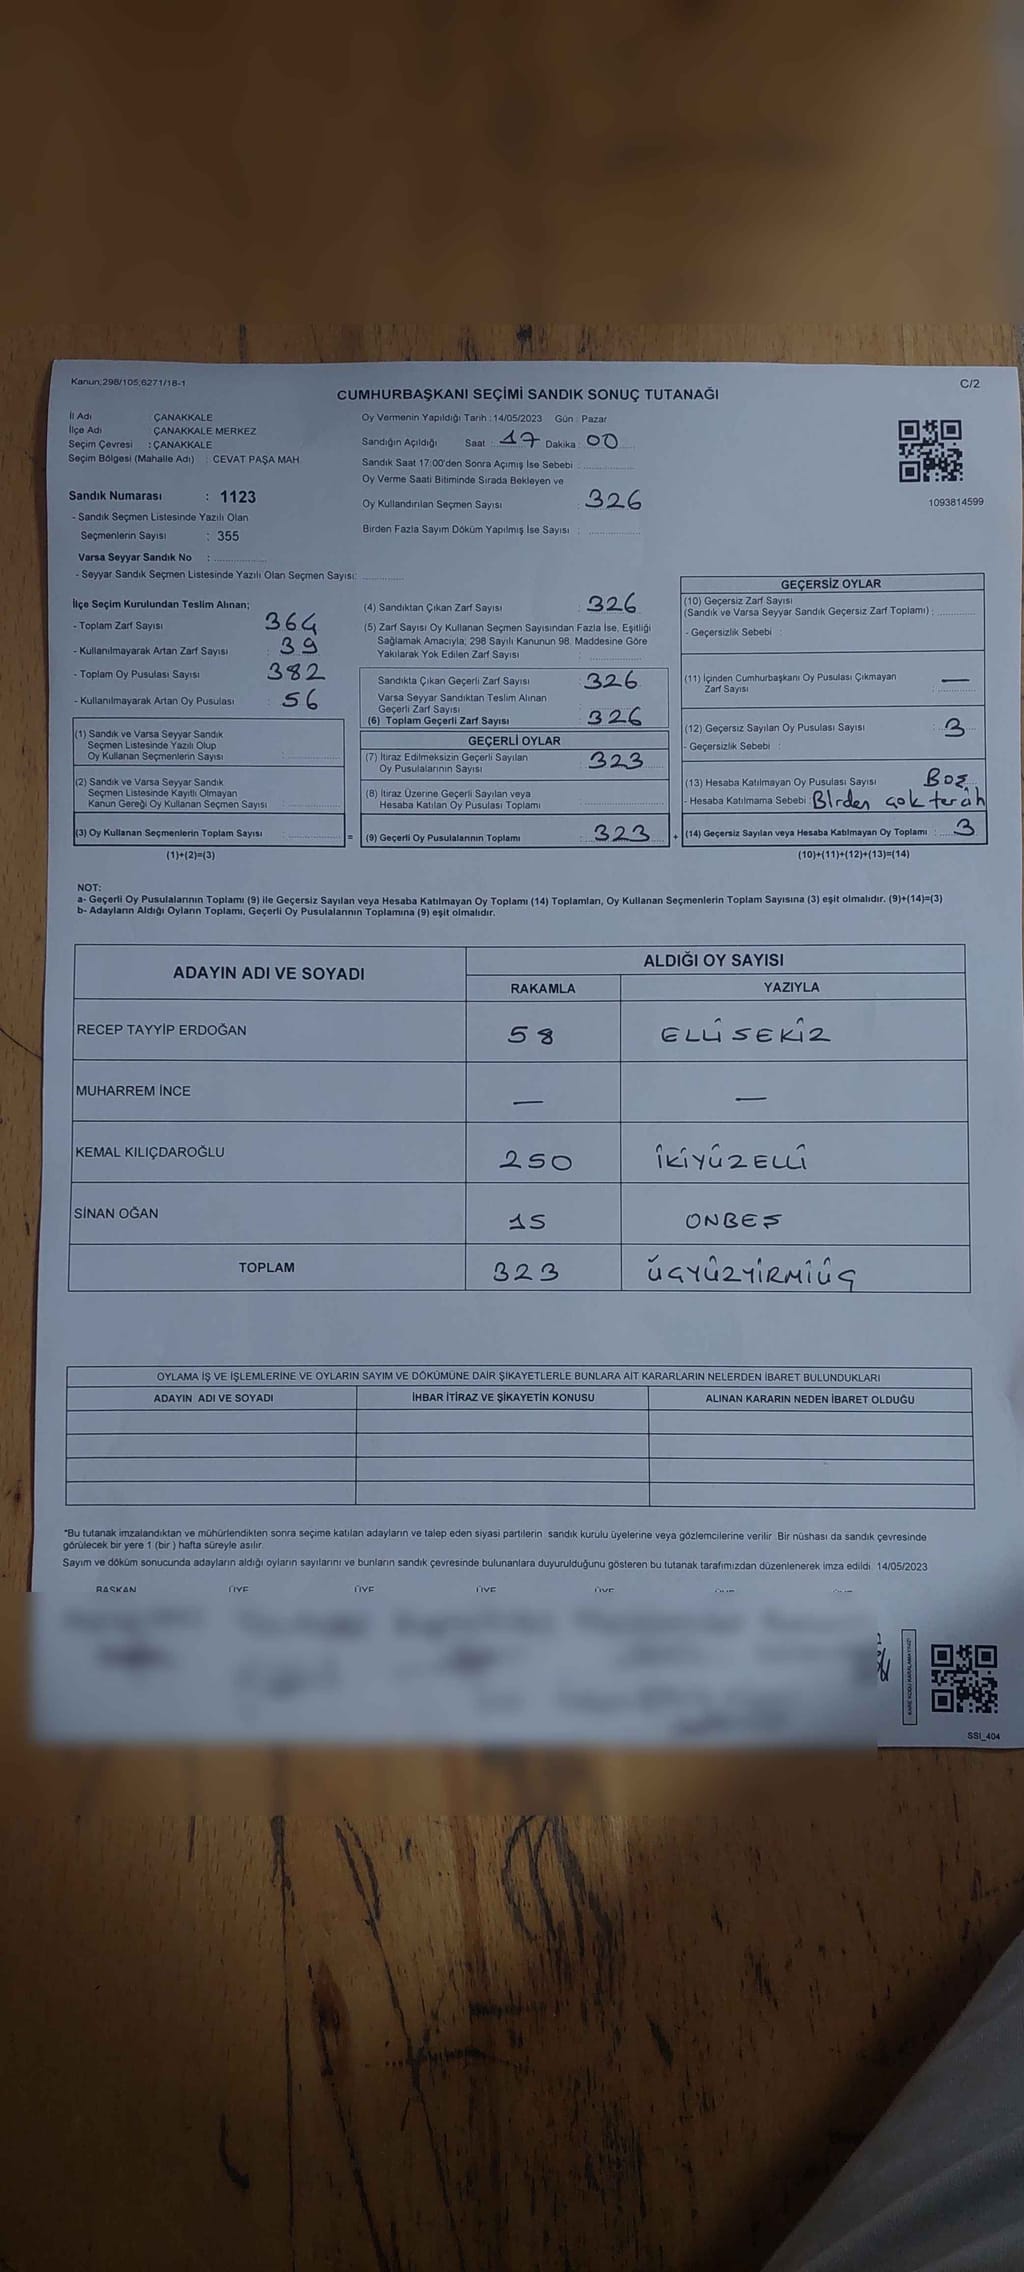 Kanun;298/105,6271/18-1
C/2
CUMHURBAŞKANI SEÇİMİ SANDIK SONUÇ TUTANAĞI
İl Adı ÇANAKKALE
İlçe Adı ÇANAKKALE MERKEZ
Seçim Çevresi : ÇANAKKALE
Seçim Bölgesi (Mahalle Adı) : CEVAT PAŞA MAH
Oy Vermenin Yapıldığı Tarih : 14/05/2023 Gün : Pazar
Sandığın Açıldığı Saat : 17 Dakika : 00
Sandık Saat 17:00'den Sonra Açımış İse Sebebi :
Oy Verme Saati Bitiminde Sırada Bekleyen ve
Oy Kullandırılan Seçmen Sayısı : 326
Birden Fazla Sayım Döküm Yapılmış İse Sayısı :
1093814599
Sandık Numarası : 1123
- Sandık Seçmen Listesinde Yazılı Olan
Seçmenlerin Sayısı : 355
Varsa Seyyar Sandık No :
- Seyyar Sandık Seçmen Listesinde Yazılı Olan Seçmen Sayısı:
İlçe Seçim Kurulundan Teslim Alınan;
- Toplam Zarf Sayısı 364
- Kullanılmayarak Artan Zarf Sayısı : 39
- Toplam Oy Pusulası Sayısı 382
- Kullanılmayarak Artan Oy Pusulası : 56
(1) Sandık ve Varsa Seyyar Sandık
Seçmen Listesinde Yazılı Olup
Oy Kullanan Seçmenlerin Sayısı :
(2) Sandık ve Varsa Seyyar Sandık
Seçmen Listesinde Kayıtlı Olmayan
Kanun Gereği Oy Kullanan Seçmen Sayısı :
(3) Oy Kullanan Seçmenlerin Toplam Sayısı : =
(1)+(2)=(3)
(4) Sandıktan Çıkan Zarf Sayısı : 326
(5) Zarf Sayısı Oy Kullanan Seçmen Sayısından Fazla İse, Eşitliği
Sağlamak Amacıyla; 298 Sayılı Kanunun 98. Maddesine Göre
Yakılarak Yok Edilen Zarf Sayısı :
Sandıkta Çıkan Geçerli Zarf Sayısı : 326
Varsa Seyyar Sandıktan Teslim Alınan
Geçerli Zarf Sayısı :
(6) Toplam Geçerli Zarf Sayısı : 326
GEÇERLİ OYLAR
(7) İtiraz Edilmeksizin Geçerli Sayılan
Oy Pusulalarının Sayısı : 323
(8) İtiraz Üzerine Geçerli Sayılan veya
Hesaba Katılan Oy Pusulası Toplamı :
(9) Geçerli Oy Pusulalarının Toplamı : 323 +
GEÇERSİZ OYLAR
(10) Geçersiz Zarf Sayısı
(Sandık ve Varsa Seyyar Sandık Geçersiz Zarf Toplamı) :
- Geçersizlik Sebebi :
(11) İçinden Cumhurbaşkanı Oy Pusulası Çıkmayan
Zarf Sayısı : —
(12) Geçersiz Sayılan Oy Pusulası Sayısı : 3
- Geçersizlik Sebebi :
(13) Hesaba Katılmayan Oy Pusulası Sayısı : Boş
- Hesaba Katılmama Sebebi : Birden çok tercih
(14) Geçersiz Sayılan veya Hesaba Katılmayan Oy Toplamı : 3
(10)+(11)+(12)+(13)=(14)
NOT:
a- Geçerli Oy Pusulalarının Toplamı (9) ile Geçersiz Sayılan veya Hesaba Katılmayan Oy Toplamı (14) Toplamları, Oy Kullanan Seçmenlerin Toplam Sayısına (3) eşit olmalıdır. (9)+(14)=(3)
b- Adayların Aldığı Oyların Toplamı, Geçerli Oy Pusulalarının Toplamına (9) eşit olmalıdır.
ADAYIN ADI VE SOYADI ALDIĞI OY SAYISI
RAKAMLA YAZIYLA
RECEP TAYYİP ERDOĞAN 58 ELLİ SEKİZ
MUHARREM İNCE — —
KEMAL KILIÇDAROĞLU 250 İKİYÜZELLİ
SİNAN OĞAN 15 ONBEŞ
TOPLAM 323 ÜÇYÜZYİRMİÜÇ
OYLAMA İŞ VE İŞLEMLERİNE VE OYLARIN SAYIM VE DÖKÜMÜNE DAİR ŞİKAYETLERLE BUNLARA AİT KARARLARIN NELERDEN İBARET BULUNDUKLARI
ADAYIN ADI VE SOYADI İHBAR İTİRAZ VE ŞİKAYETİN KONUSU ALINAN KARARIN NEDEN İBARET OLDUĞU
*Bu tutanak imzalandıktan ve mühürlendikten sonra seçime katılan adayların ve talep eden siyasi partilerin sandık kurulu üyelerine veya gözlemcilerine verilir. Bir nüshası da sandık çevresinde
görülecek bir yere 1 (bir ) hafta süreyle asılır.
Sayım ve döküm sonucunda adayların aldığı oyların sayılarını ve bunların sandık çevresinde bulunanlara duyurulduğunu gösteren bu tutanak tarafımızdan düzenlenerek imza edildi. 14/05/2023
BAŞKAN ÜYE ÜYE ÜYE ÜYE
KARE KODU KARALAMAYINIZ!
SSI_404